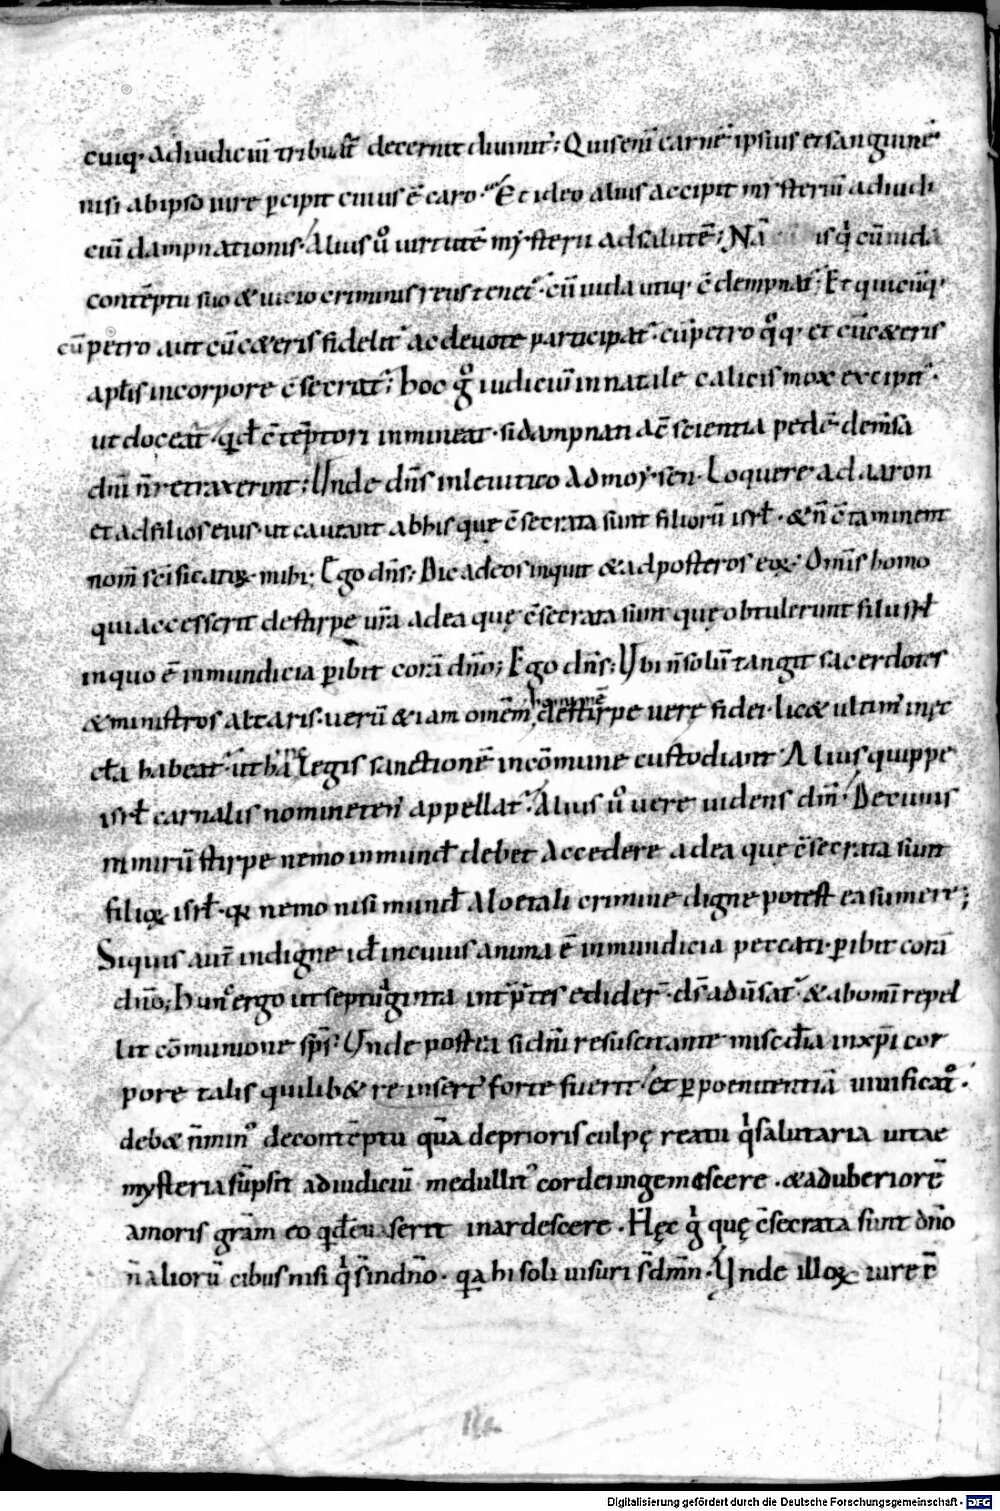 cuiq. adiudiciū tribuat᷑ decernit diuinit᷒; Quis eni᷒ carnē ipsius et sanguinē
nisi ab ipso iure ꝑcipit cuius ē caro. Et ideo alius accipit mysteriū ad iudi
ciū dampnationis. Alius ů uirtutē mysterii ad salutē; Nā isq̇ cū iuda
contēptu suo & uicio criminis reus tenet᷑. cū iuda utiq. c̄dempnat᷑; Et quicūq.
cū petro aut cū cęteris fidelit᷑ ac deuote participat. cū petro q̊q. et cū cęteris
aplis in corpore c̄secrat᷑; Hoc g̊ iudiciū in natale calicis mox excipit᷑.
ut doceat᷑. qđ c̄tēptori immineat. si dampnandā c̄scientia pedē demsa
dn̄i n̄ retraxerint; Unde dn̄s in leuitico ad moysen. Loquere ad aaron
et ad filios eius. ut caueant ab his quę c̄secrata sunt filiorū isrł. & n̄ c̄taminent
nom̄ sc̄ificatoꝝ mihi; Ego dn̄s; Dic ad eos inquit & ad posteros eoꝝ. Omīs homo
qui accesserit de stirpe ur̄a ad ea quę c̄secrata sunt quę obtulerunt filii isrł
in quo ē inmundicia ꝑibit corā dn̄o; Ego dn̄s; Ubi n̄ solū tangit sacerdotes
& ministros altaris. uerū & iam omēm hominē de stirpe uerę fidei. licet ultim᷒ in ęc
cła habeat᷑. ut hanc legis sanctionē in cōmune custodiant. Alius quippe
isrł carnalis nomine ten᷒ appellat᷑. Alius ů uere uidens dm̄. De cuius
nimirū stirpe nemo inmund᷒ debet accedere ad ea que c̄secrata sunt
filioꝝ isrł. qꝛ nemo nisi mund᷒ a loetali crimine digne potest ea sumere;
Siquis aut̄ indigne id᷒ in cuius anima ē inmundicia peccati. ꝑibit corā
dn̄o; Hunc ergo ut septuaginta int̄ꝑtes edider᷑. ds̄ aduersat᷑. & abomī repel
lit cōmunione sp̄s; Unde postea si dn̄i resuscitante misc̄dia in xp̄i cor
pore talis quilib& reinsert᷒ forte fuerit. et ꝑ poenitentiā uiuificat᷑.
deb& n̄ min᷒ de contēptu quā de prioris culpę reatu q̇ salutaria uitae
mysteria sūpsit ad iudiciū medullit᷒ corde ingemescere. & ad uberiorē
amoris grām eo qđ euaserit inardescere. Hęc g̊ quę c̄secrata sunt dn̄o
n̄ aliorū cibus nisi q̇ s̄ in dn̄o. qꝛ hi soli uisuri s̄ dm̄. Unde illoꝝ iure ē